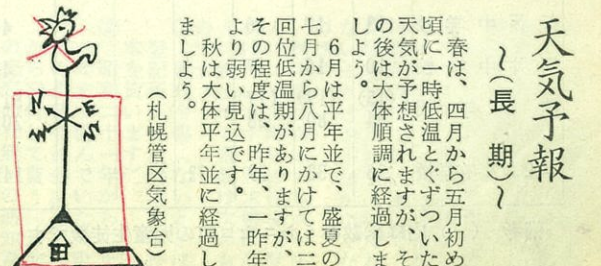 天気予報
～(長期)～
春は、四月から五月初め
頃に一時低温とぐずついた
天気が予想されますが、そ
の後は大体順調に経過しま
しょう。
6月は平年並で、盛夏の
七月から八月にかけては二
回位低温期がありますが、
その程度は、昨年、一昨年
より弱い見込です。
秋は大体平年並に経過し
ましょう。
(札幌管区気象台)
N
E
W
S